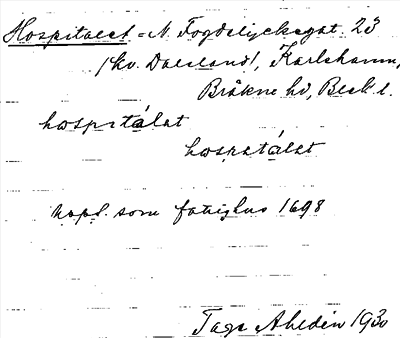 Hospitalet = N. Fogdelyckegat. 23
/kv. Dalsland/, Karlshamn,
Bräkne hd, Blek. l.
hospitálət
hospətálət
uppf. som fattighus 1698
Tage Ahldén 1930